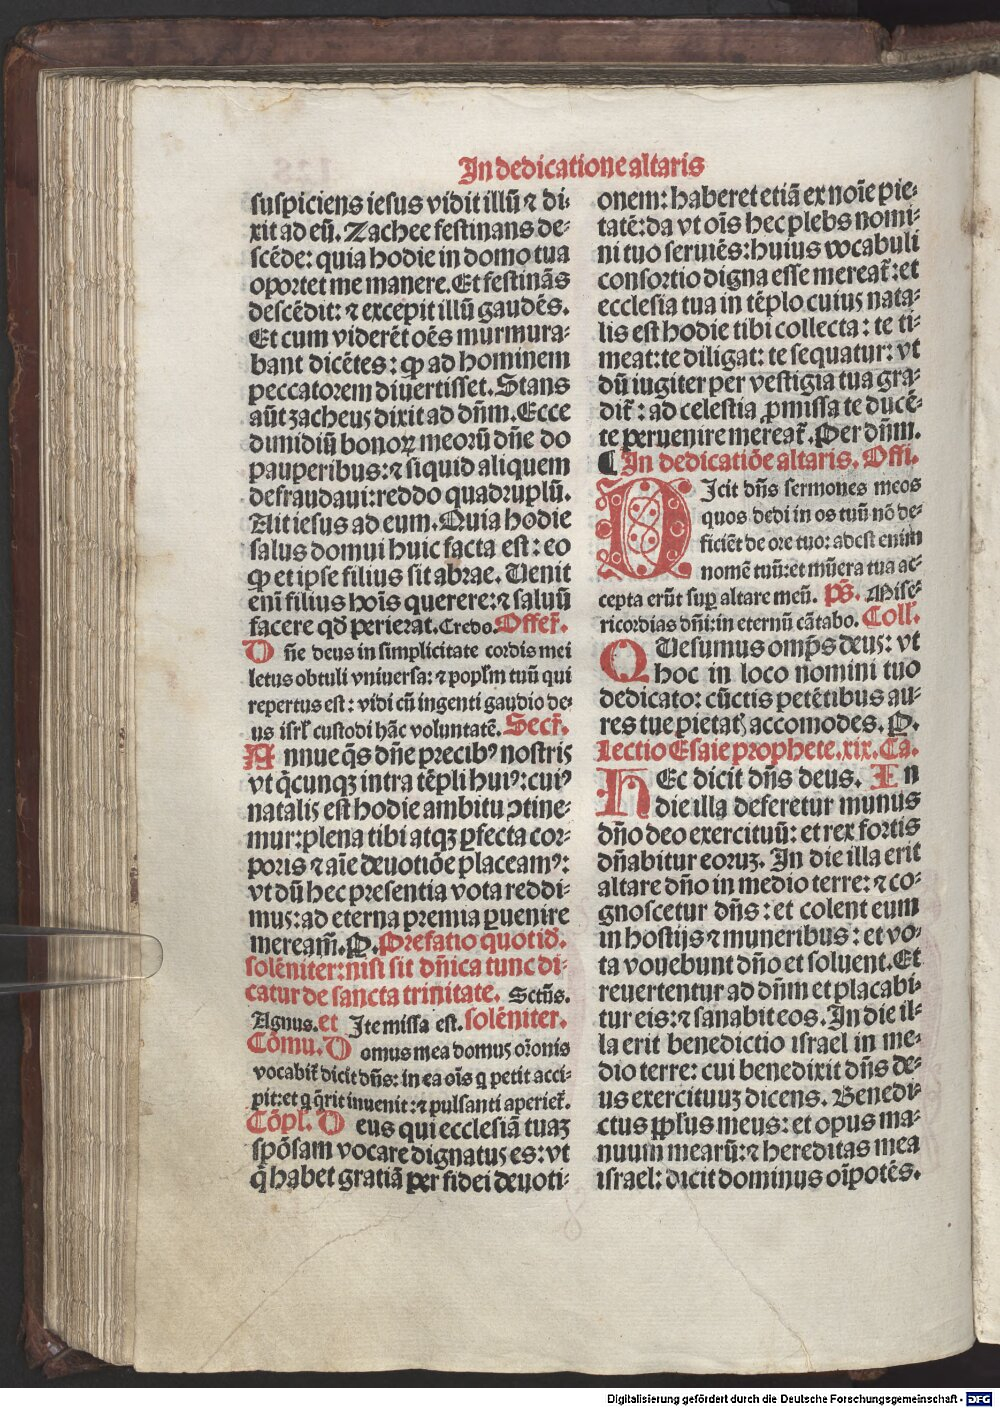 In dedicatione altaris
suspiciens iesus vidit illũ ⁊ di-
xit ad eũ. Zachee festinans de-
scẽde: quia hodie in domo tua
oportet me manere. Et festinãs
descẽdit: ⁊ excepit illũ gaudẽs.
Et cum viderẽt oẽs murmura-
bant dicẽtes: ꝙ ad hominem
peccatorem diuertisset. Stans
aũt zacheus dixit ad dñm. Ecce
dimidiũ bonoꝝ meorũ dñe do
pauperibus: ⁊ si quid aliquem
defraudaui: reddo quadruplũ.
Ait iesus ad eum. Quia hodie
salus domui huic facta est: eo
ꝙ et ipse filius sit abrae. Uenit
enĩ filius hoĩs querere: ⁊ saluũ
facere qđ perierat. Credo. Offer̃.
D ñe deus in simplicitate cordis mei
letus obtuli vniuersa: ⁊ popl̃m tuũ qui
repertus est: vidi cũ ingenti gaudio de-
us isrl̃ custodi hãc voluntatẽ. Secr̃.
A nnue q̃s dñe precibꝰ nostris
vt q̃cunqꝫ intra tẽpli huiꝰ: cuiꝰ
natalis est hodie ambitu ↄtine-
mur: plena tibi atqꝫ ꝑfecta cor-
poris ⁊ aĩe deuotiõe placeamꝰ:
vt dũ hec presentia vota reddi-
mus: ad eterna premia ꝑuenire
meream̃. P. Prefatio quotid̃.
solẽniter: nisi sit dñica tunc di-
catur de sancta trinitate. Sctũs.
Agnus. et Ite missa est. solẽniter.
Cõmu. D omus mea domus orõnis
vocabit̃ dicit dñs: in ea oĩs q petit acci-
pit: et q q̃rit inuenit: ⁊ pulsanti aperiet̃.
Cõpl̃. D eus qui ecclesiã tuaꝫ
spõsam vocare dignatus es: vt
q̃ habet gratiã per fidei deuoti-
onem: haberet etiã ex noĩe pie-
tatẽ: da vt oĩs hec plebs nomi-
ni tuo seruiẽs: huius vocabuli
consortio digna esse mereat̃: et
ecclesia tua in tẽplo cuius nata-
lis est hodie tibi collecta: te ti-
meat: te diligat: te sequatur: vt
dũ iugiter per vestigia tua gra-
dit̃: ad celestia ꝓmissa te ducẽ-
te peruenire mereat̃. Per dñm.
¶ In dedicatiõe altaris. Offi.
D Icit dñs sermones meos
quos dedi in os tuũ nõ de-
ficiẽt de ore tuo: adest enim
nomẽ tuũ: et mũera tua ac-
cepta erũt suꝑ altare meũ. p̃s. Mise-
ricordias dñi: in eternũ cãtabo. Coll̃.
Q Uesumus omp̃s deus: vt
hoc in loco nomini tuo
dedicato: cũctis petẽtibus au-
res tue pietatꝭ accomodes. P.
Lectio Esaie prophete. xix. Ca.
H Ec dicit dñs deus. In
die illa deferetur munus
dño deo exercituũ: et rex fortis
dñabitur eoruꝫ. In die illa erit
altare dño in medio terre: ⁊ co-
gnoscetur dñs: et colent eum
in hostijs ⁊ muneribus: et vo-
ta vouebunt dño et soluent. Et
reuertentur ad dñm et placabi-
tur eis: ⁊ sanabit eos. In die il-
la erit benedictio israel in me-
dio terre: cui benedixit dñs de-
us exercituuꝫ dicens. Benedi-
ctus pp̃lus meus: et opus ma-
nuum mearũ: ⁊ hereditas mea
israel: dicit dominus oĩpotẽs.
Digitalisierung gefördert durch die Deutsche Forschungsgemeinschaft - DFG